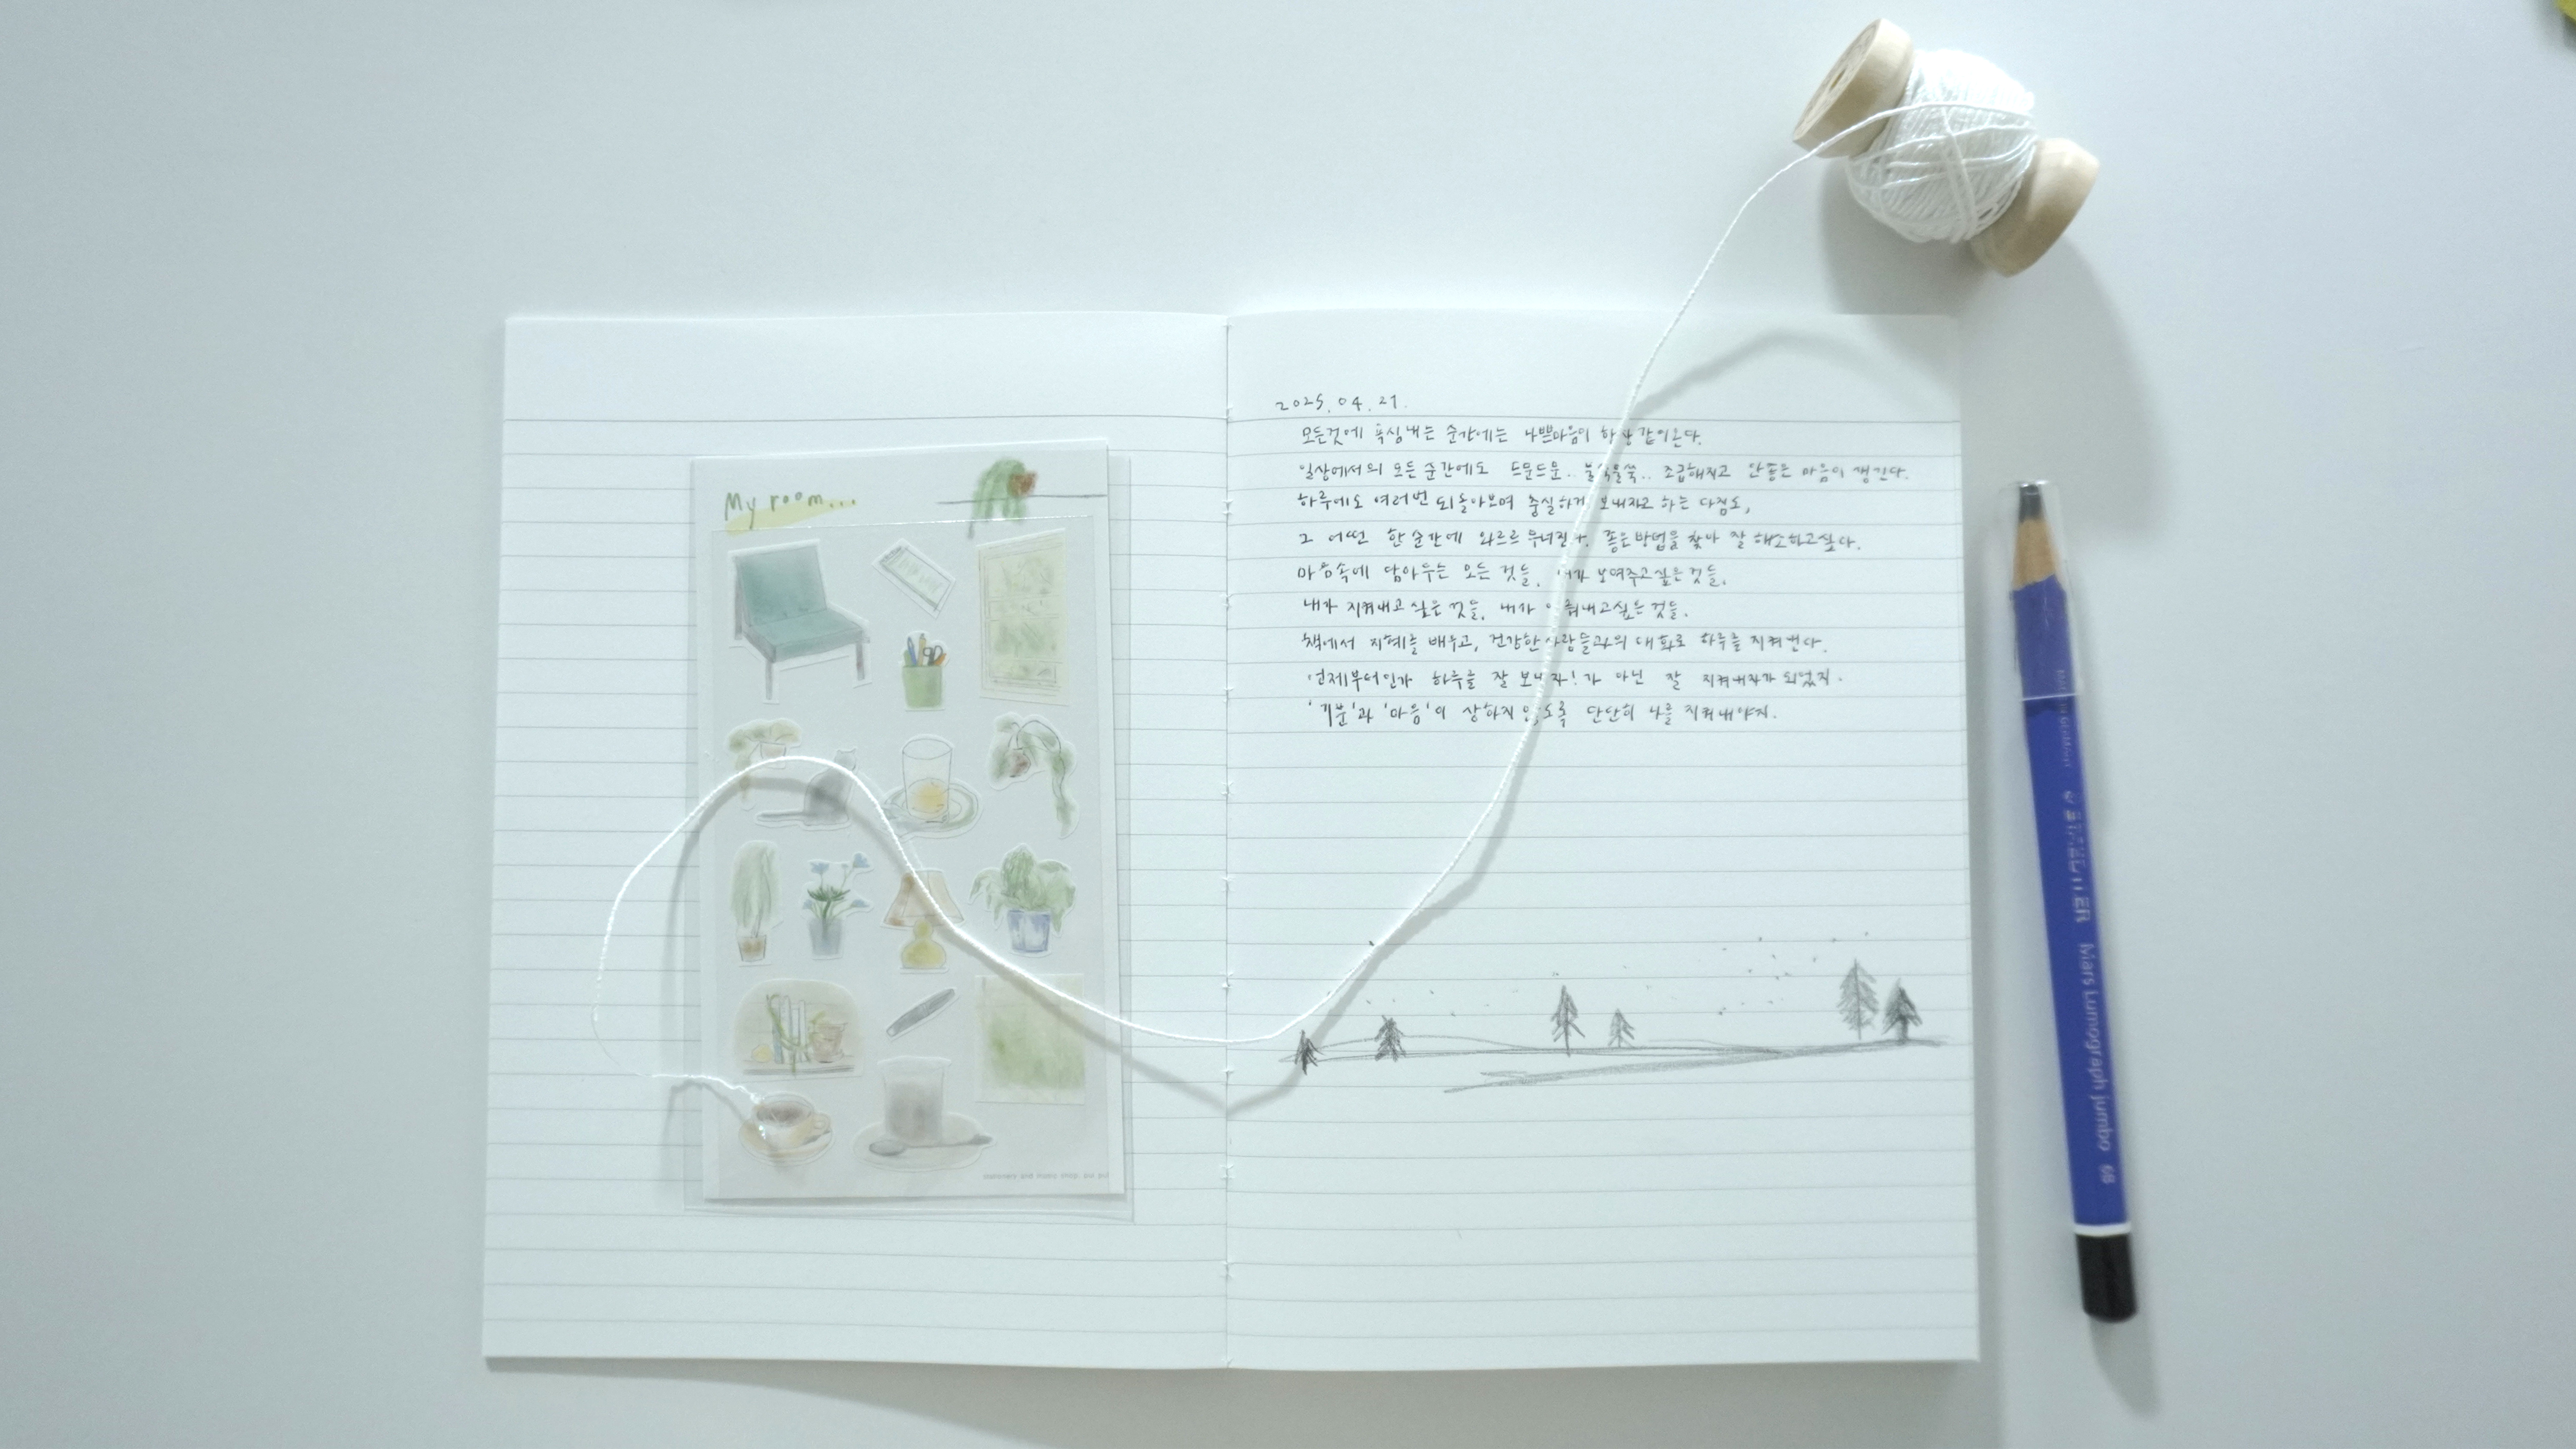 My room...
stationery and music shop.
2025. 04. 21.
모든것에 욕심내는 순간에는 나쁜마음이 항상 같이온다.
일상에서의 모든 순간에도 드문드문.. 불쑥불쑥.. 조급해지고 안좋은 마음이 생긴다.
하루에도 여러번 되돌아보며 충실하게 보내자고 하는 다짐도,
그 어떤 한 순간에 와르르 무너진다. 좋은방법을 찾아 잘 해소하고싶다.
마음속에 담아두는 모든 것들, 내가 보여주고싶은 것들,
내가 지켜내고 싶은 것들, 내가 것들.
책에서 지혜를 배우고, 건강한 사람들과의 대화로 하루를 지켜낸다.
언제부터인가 하루를 잘 보내자!가 아닌 잘 지켜내자가 되었지.
'기분'과 '마음'이 상하지 않도록 단단히 나를 지켜내야지.
STAEDTLER Mars Lumograph jumbo